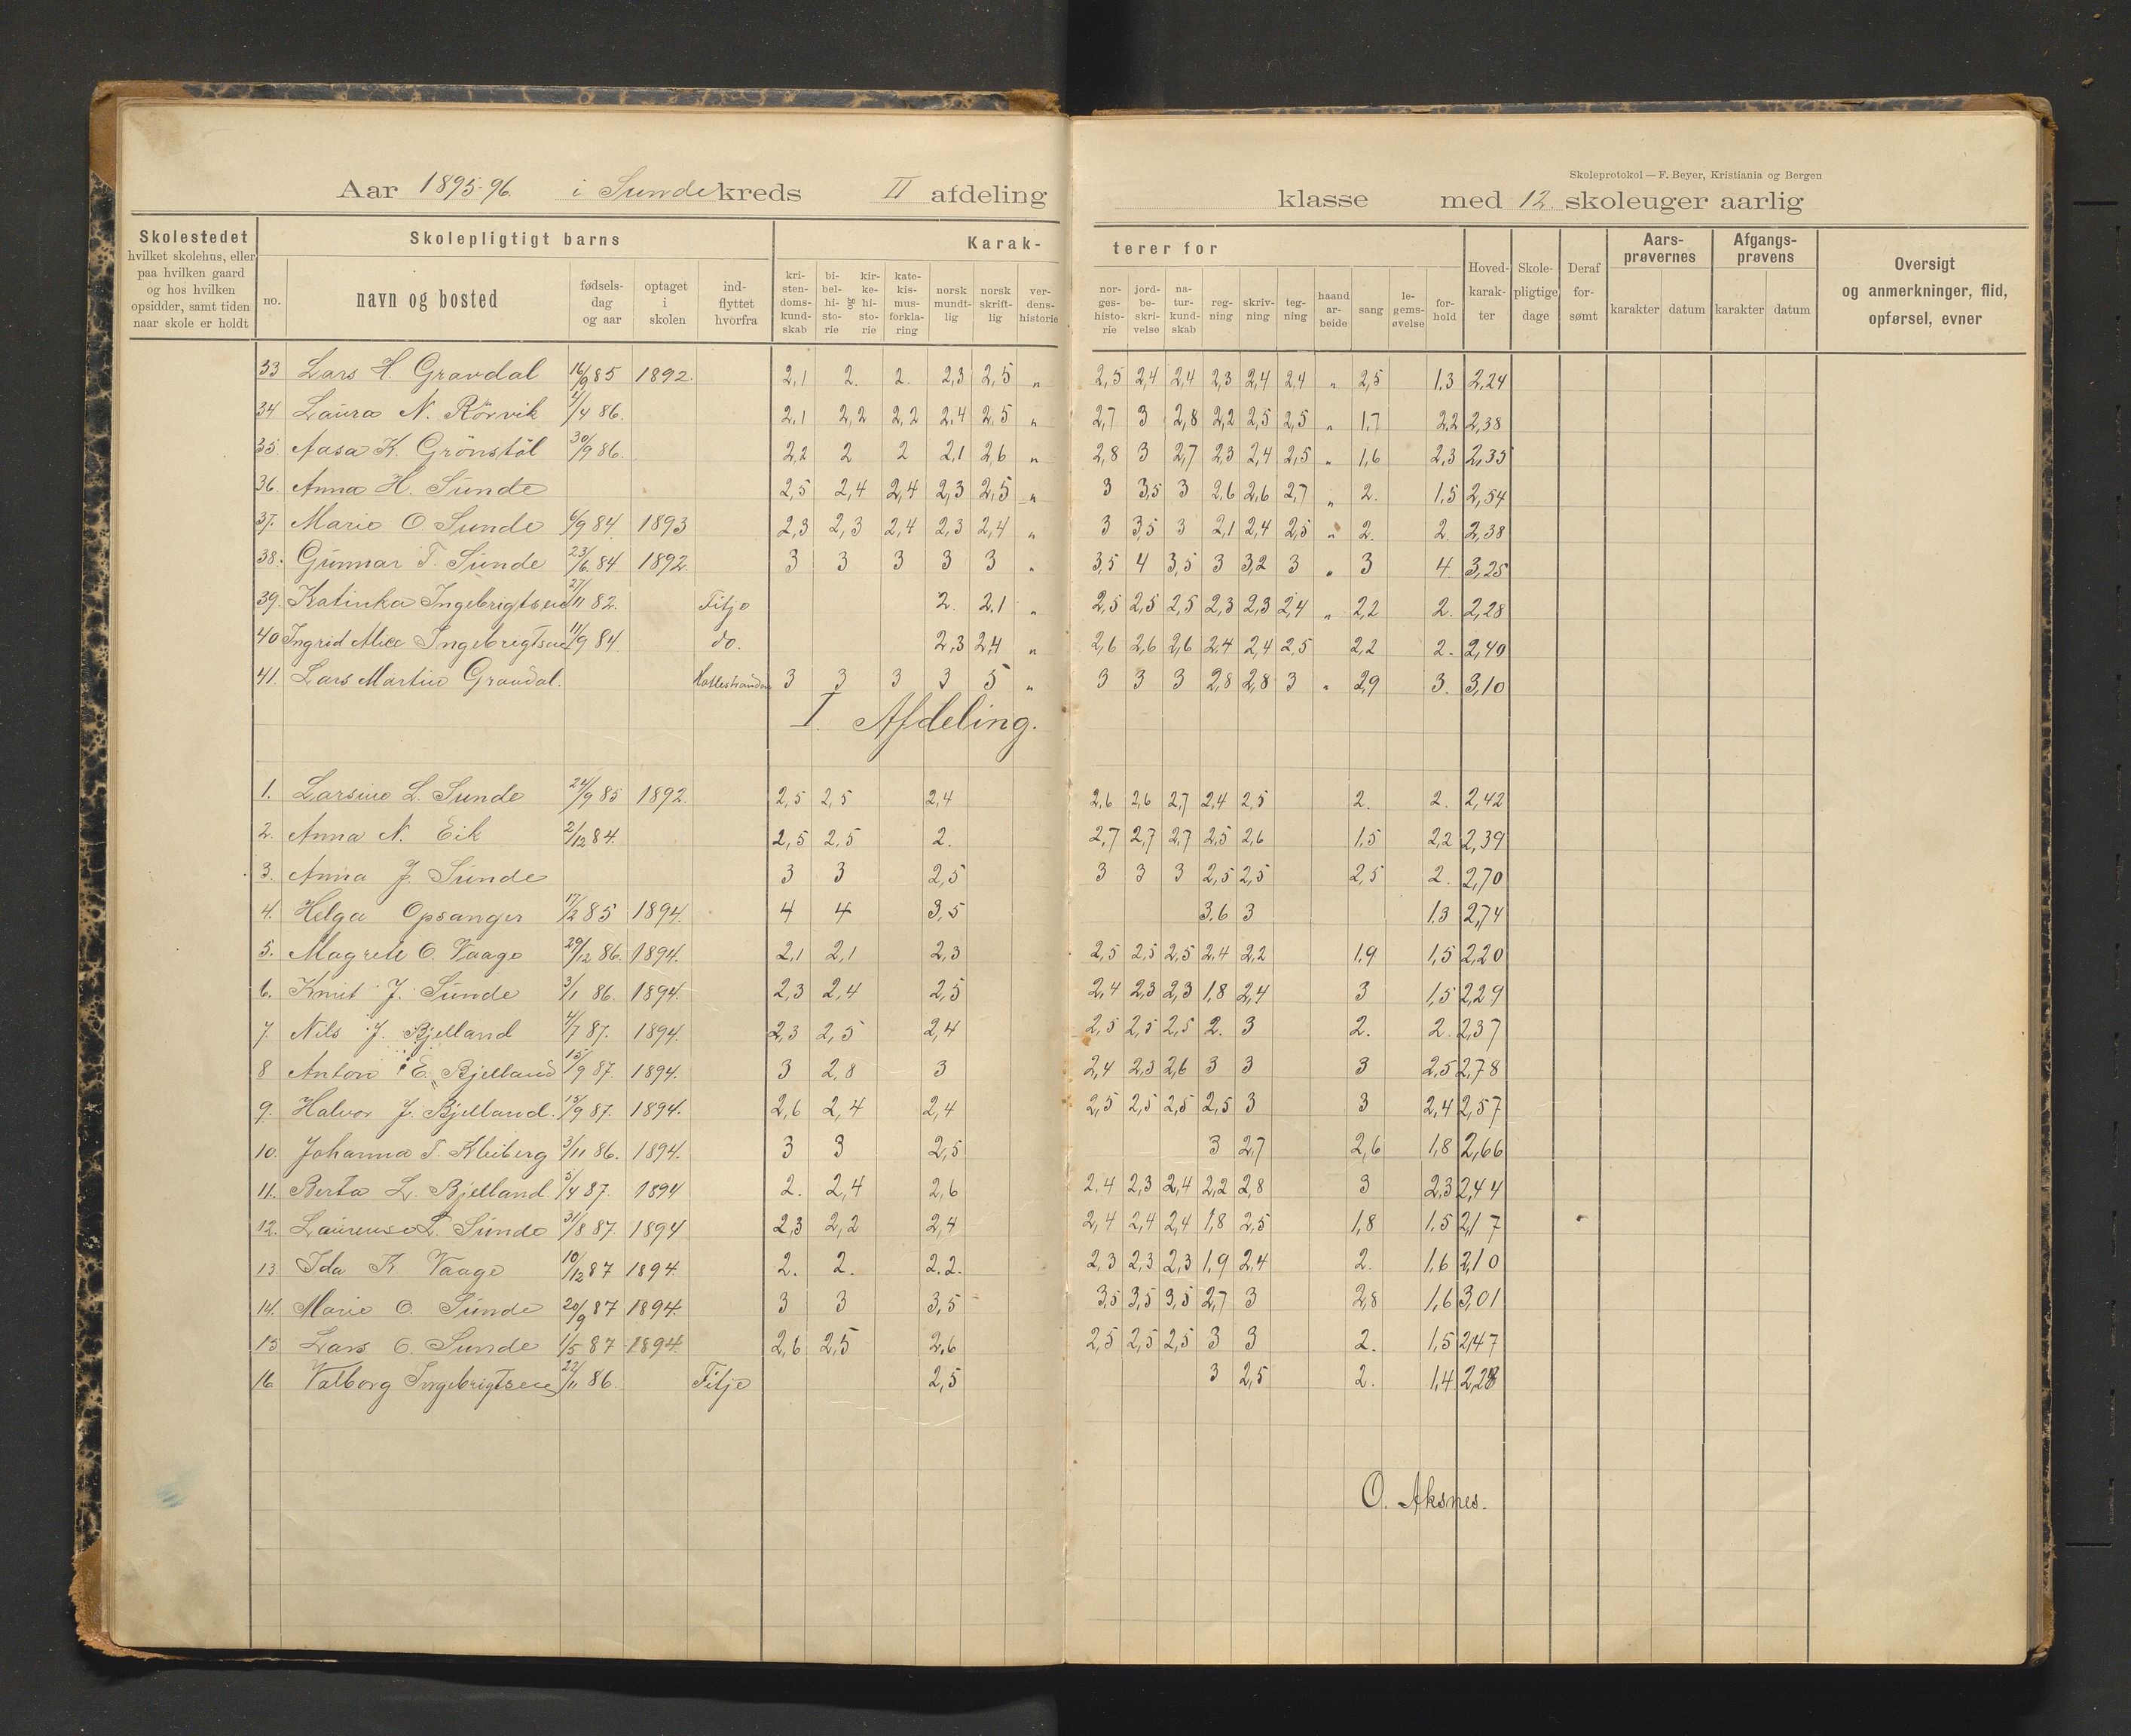 Skoleprotokol — F. Beyer, Kristiania og Bergen
Aar 1895-96. i Sunde kreds II afdeling klasse med 12. skoleuger aarlig
Skolestedet hvilket skolehus, eller paa hvilken gaard og hos hvilken opsidder, samt tiden naar skole er holdt
Skolepligtigt barns
no. navn og bosted fødsels-dag og aar optaget i skolen ind-flyttet hvorfra
Karak-terer for
kri-sten-doms-kund-skab bi-bel-hi-sto-rie og kir-ke-hi-sto-rie kate-kis-mus-forkla-ring norsk mundt-lig norsk skrift-lig ver-dens-historie nor-ges-histo-rie jord-be-skri-velse na-tur-kund-skab reg-ning skriv-ning teg-ning haand ar-beide sang le-gems-øvelse for-hold
Hoved-karak-ter Skole-pligtige dage Deraf for-sømt
Aars-prøvernes karakter datum
Afgangs-prøvens karakter datum
Oversigt og anmerkninger, flid, opførsel, evner
33 Lars H. Gravdal 16/9 85 1892. 2,1 2. 2. 2,3 2,5 " 2,5 2,4 2,4 2,3 2,4 2,4 " 2,5 1,3 2,24
34. Laura N. Rörvik /4 86. 2,1 2,2 2,2 2,4 2,5 " 2,7 3 2,8 2,2 2,5 2,5 " 1,7 2,2 2,38
35. Aasa K. Grönstöl 30/9 86. 2,2 2 2 2,1 2,6 " 2,8 3 2,7 2,3 2,4 2,5 " 1,6 2,3 2,35
36. Anna H. Sunde 2,5 2,4 2,4 2,3 2,5 " 3 3,5 3 2,6 2,6 2,7 " 2. 1,5 2,54
37. Marie O. Sunde 6/9 84. 1893 2,3 2,3 2,4 2,3 2,4 " 3 3,5 3 2,1 2,4 2,5 " 2. 2. 2,38
38. Gunnar T. Sunde 23/6 84. 1892. 3 3 3 3 3 " 3,5 4 3,5 3 3,2 3 " 3 4. 3,25
39. Katinka Ingebrigtsen 27/11 82. Fitje 2. 2.1 " 2,5 2,5 2,5 2,3 2,3 2,4 " 2,2 2. 2,28
40 Ingrid Alice Ingebrigtsen 11/9 84. do. 2,3 2,4 " 2,6 2,6 2,6 2,4 2,4 2,5 2,2 2. 2,40
41. Lars Martin Gravdal. 3 3 3 3 5 " 3 3 3 2,8 2,8 3 " 2,9 3. 3,10
I. Afdeling.
1. Larsine L. Sunde 24/9 85 1892. 2,5 2,5 2,4 2,6 2,6 2,7 2,4 2,5 2. 2. 2,42
2. Anna N. Eik 2/12 84. 2,5 2,5 2. 2,7 2,7 2,7 2,5 2,6 1,5 2,2 2,39
3. Anna J. Sunde 3 3 2,5 3 3 3 2,5 2,5 2,5 2. 2,70
4. Helga Opsanger 17/2 85 1894. 4 4 3,5 3,6 3 1,3 2,74
5. Magrete O. Vaage 29/12 86. 1894. 2,1 2,1 2,3 2,5 2,5 2,5 2,4 2,2 1,9 1,5 2,20
6. Knut J. Sunde 3/1 86. 1894. 2,3 2,4 2,5 2,4 2,3 2,3 1,8 2,4 3 1,5 2,29
7. Nils J. Bjelland 4/7 87. 1894. 2,3 2,5 2,4 2,5 2,5 2,5 2. 3 2. 2. 2,37
8 Anton E. Bjelland 15/9 87. 1894. 3 2,8 3 2,4 2,3 2,6 3 3 3 2,5 2,78
9. Halvor J. Bjelland. 13/9 87. 1894. 2,6 2,4 2,4 2,5 2,5 2,5 2,5 3 3 2,4 2,57
10. Johanna T. Kleiberg 3/11 86. 1894. 3 3 2,5 3 2,7 2,6 1,8 2,66
11. Berta L. Bjelland. 5/4 87. 1894 2. 2,4 2,6 2,4 2,3 2,4 2,2 2,8 3 2,3 2,44
12. Laurense L. Sunde 31/8 87. 1894 2,3 2,2 2,4 2,4 2,4 2,4 1,8 2,5 1,8 1,5 2,17
13. Ida K. Vaage 10/12 87 1894. 2. 2. 2.2. 2,3 2,3 2,3 1,9 2,4 2. 1,6 2,10
14. Marie O. Sunde 20/9 87 1894. 3 3 3,5 3,5 3,5 3,5 2,7 3 2,8 1,6 3,01
15 Lars O. Sunde 1/5 87 1894. 2,6 2,5 2,6 2,5 2,5 2,5 3 3 2. 1,5 2,47
16 Valborg Ingebrigtsen 22/11 86. Fitje 2,5 3 2,5 2. 1,4 2,28
O. Aksnes.